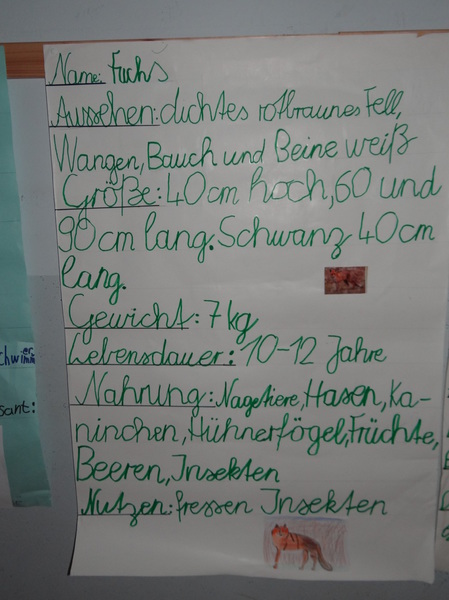 Name: Fuchs
Aussehen: dichtes rotbraunes Fell,
Wangen, Bauch und Beine weiß
Größe: 40cm hoch, 60 und
90cm lang. Schwanz 40cm
lang.
Gewicht: 7kg
Lebensdauer: 10-12 Jahre
Nahrung: Nagetiere, Hasen, Ka-
ninchen, Hühnerfögel, Früchte,
Beeren, Insekten
Nutzen: fressen Insekten